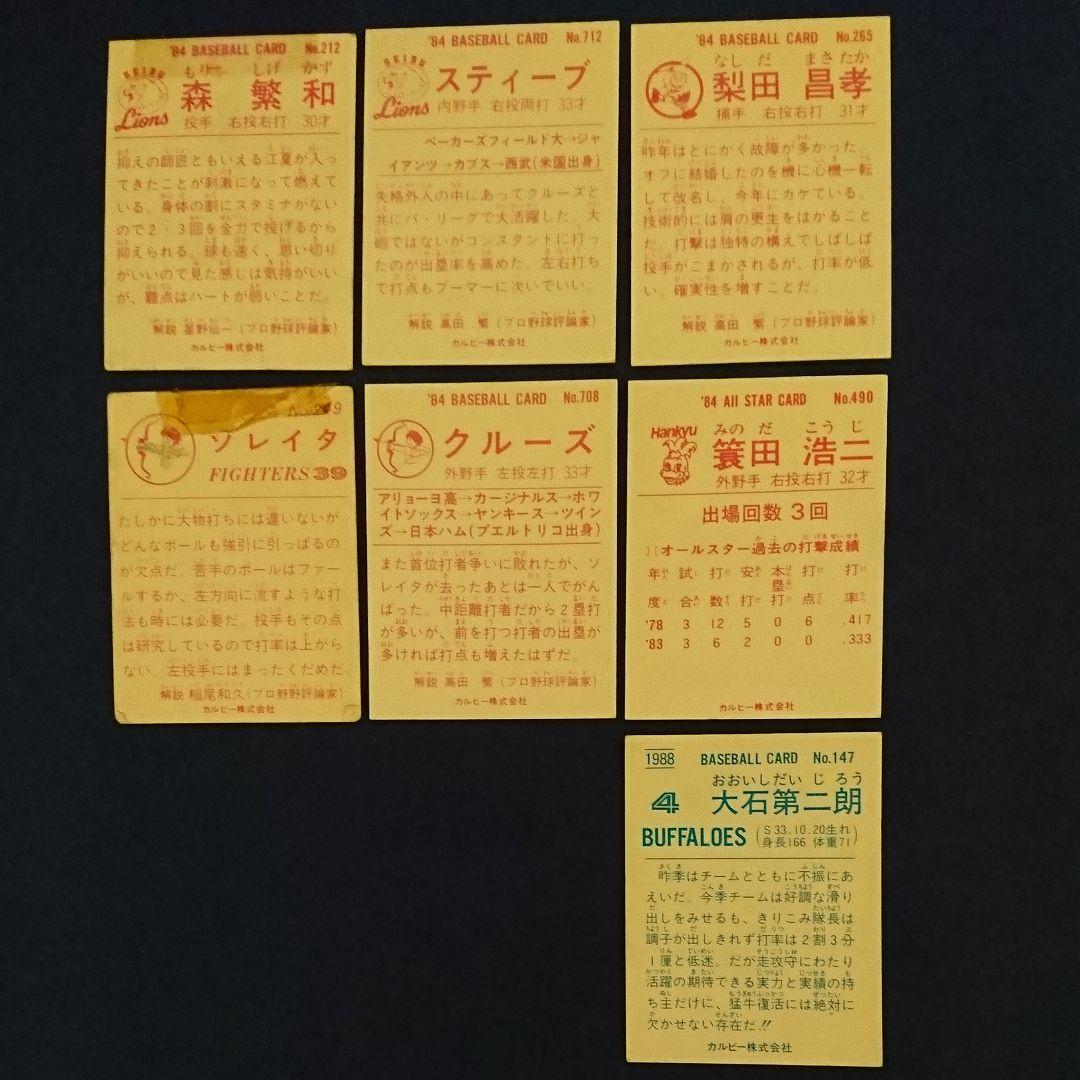 '84 BASEBALL CARD No.212
SEIBU
もり しげ かず
森 繁 和
Lions
投手 右投右打 30才
抑えの師匠ともいえる江夏が入っ
てきたことが刺激になって燃えて
いる。身体の割にスタミナがない
ので2・3回を全力で投げるから
抑えられる。球も速く、思い切り
がいいので見た感じは気持がいい
が、難点はハートが弱いことだ。
解説 星野仙一(プロ野球評論家)
カルビー株式会社
'84 BASEBALL CARD No.712
SEIBU
スティーブ
Lions
内野手 右投両打 33才
ベーカーズフィールド大→ジャ
イアンツ→カブス→西武(米国出身)
失格外人の中にあってクルーズと
共にパ・リーグで大活躍した。大
砲ではないがコンスタントに打っ
たのが出塁率を高めた。左右打ち
で打点もブーマーに次いでいい。
解説 高田 繁(プロ野球評論家)
カルビー株式会社
'84 BASEBALL CARD No.265
なし だ まさたか
梨田 昌孝
捕手 右投右打 31才
昨年はとにかく故障が多かった。
オフに結婚したのを機に心機一転
して改名し、今年にカケている。
技術的には肩の更生をはかること
だ。打撃は独特の構えでしばしば
投手がごまかされるが、打率が低
い。確実性を増すことだ。
解説 高田 繁(プロ野球評論家)
カルビー株式会社
ソレイタ
FIGHTERS 39
たしかに大物打ちには違いないが
どんなボールも強引に引っぱるの
が欠点だ。苦手のボールはファー
ルするか、左方向に流すような打
法も時には必要だ。投手もその点
は研究しているので打率は上がら
ない。左投手にはまったくだめだ。
解説 稲尾和久(プロ野野評論家)
カルビー株式会社
'84 BASEBALL CARD No.708
クルーズ
外野手 左投左打 33才
アリョーヨ高→カージナルス→ホワ
イトソックス→ヤンキース→ツイン
ズ→日本ハム(プエルトリコ出身)
また首位打者争いに敗れたが、ソ
レイタが去ったあとは一人でがん
ばった。中距離打者だから2塁打
が多いが、前を打つ打者の出塁が
多ければ打点も増えたはずだ。
解説 高田 繁(プロ野球評論家)
カルビー株式会社
'84 All STAR CARD No.490
Hankyu
みの だ こう じ
簑田 浩二
外野手 右投右打 32才
出場回数3回
オールスター過去の打撃成績
年 試 打 安 本塁 打 打
度 合 数 打 打 点 率
'78 3 12 5 0 6 .417
'83 3 6 2 0 0 .333
カルビー株式会社
1988 BASEBALL CARD No.147
おおいしだい じ ろう
4 大石第二朗
BUFFALOES (S33.10.20生れ
身長166 体重71)
昨季はチームとともに不振にあ
えいだ。今季チームは好調な滑り
出しをみせるも、きりこみ隊長は
調子が出しきれず打率は2割3分
1厘と低迷。だが走攻守にわたり
活躍の期待できる実力と実績の持
ち主だけに、猛牛復活には絶対に
欠かせない存在だ!!
カルビー株式会社